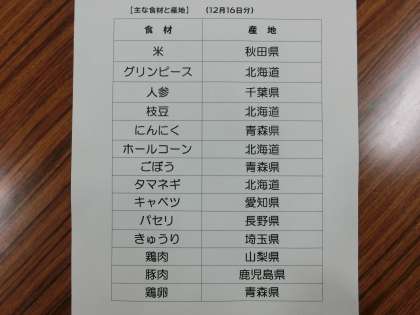 【主な食材と産地】 （12月16日分）
食材 産地
米 秋田県
グリンピース 北海道
人参 千葉県
枝豆 北海道
にんにく 青森県
ホールコーン 北海道
ごぼう 青森県
タマネギ 北海道
キャベツ 愛知県
パセリ 長野県
きゅうり 埼玉県
鶏肉 山梨県
豚肉 鹿児島県
鶏卵 青森県